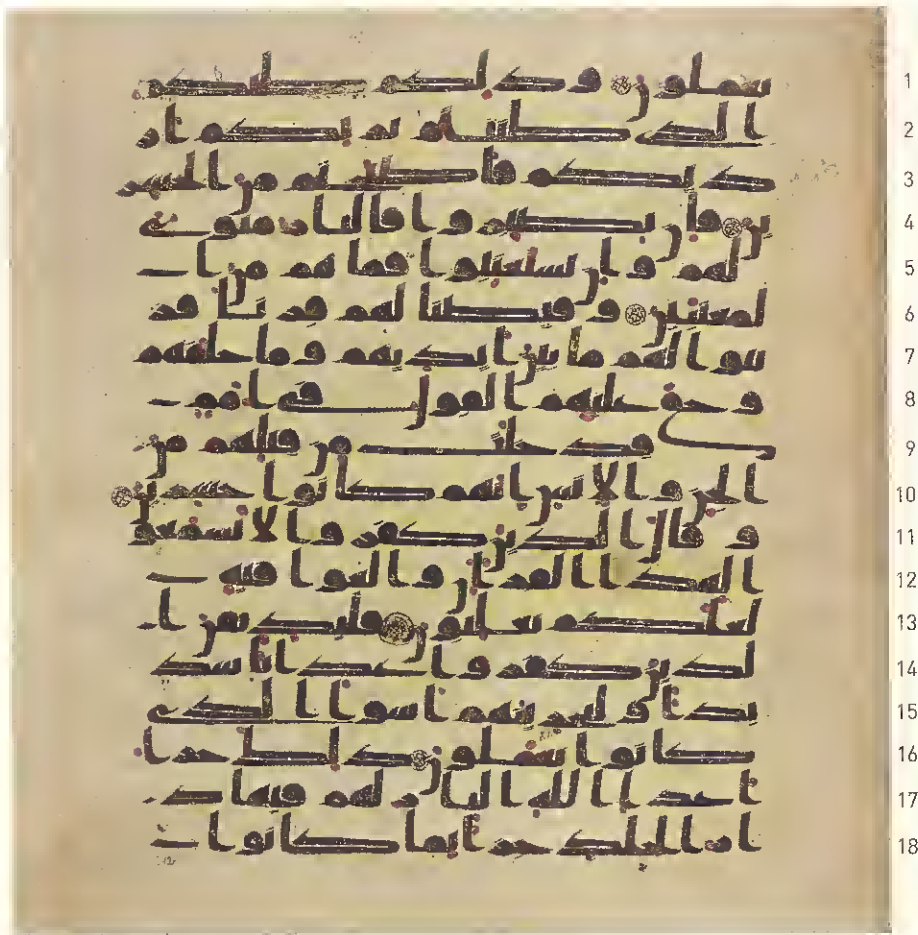 1 تعملون وذلكم ظنكم
2 الذي ظننتم بربكم ار
3 دىكم فاصبحتم من الخسر
4 ين فان يصبروا فالنار مثوى
5 لهم وان يستعتبوا فما هم من ا
6 لمعتبين وقيضنا لهم قرنا فز
7 ينوا لهم ما بين ايديهم وما خلفهم
8 وحق عليهم القول في امم
9 قد خلت من قبلهم من
10 الجن والانس انهم كانوا خسرين
11 وقال الذين كفروا لا تسمعوا
12 لهذا القران والغوا فيه
13 لعلكم تغلبون فلنذيقن ا
14 لذين كفروا عذابا شد
15 يدا ولنجزينهم اسوا الذي
16 كانوا يعملون ذلك جزا
17 اعدا الله النار لهم فيها د
18 ار الخلد جزا بما كانوا ب